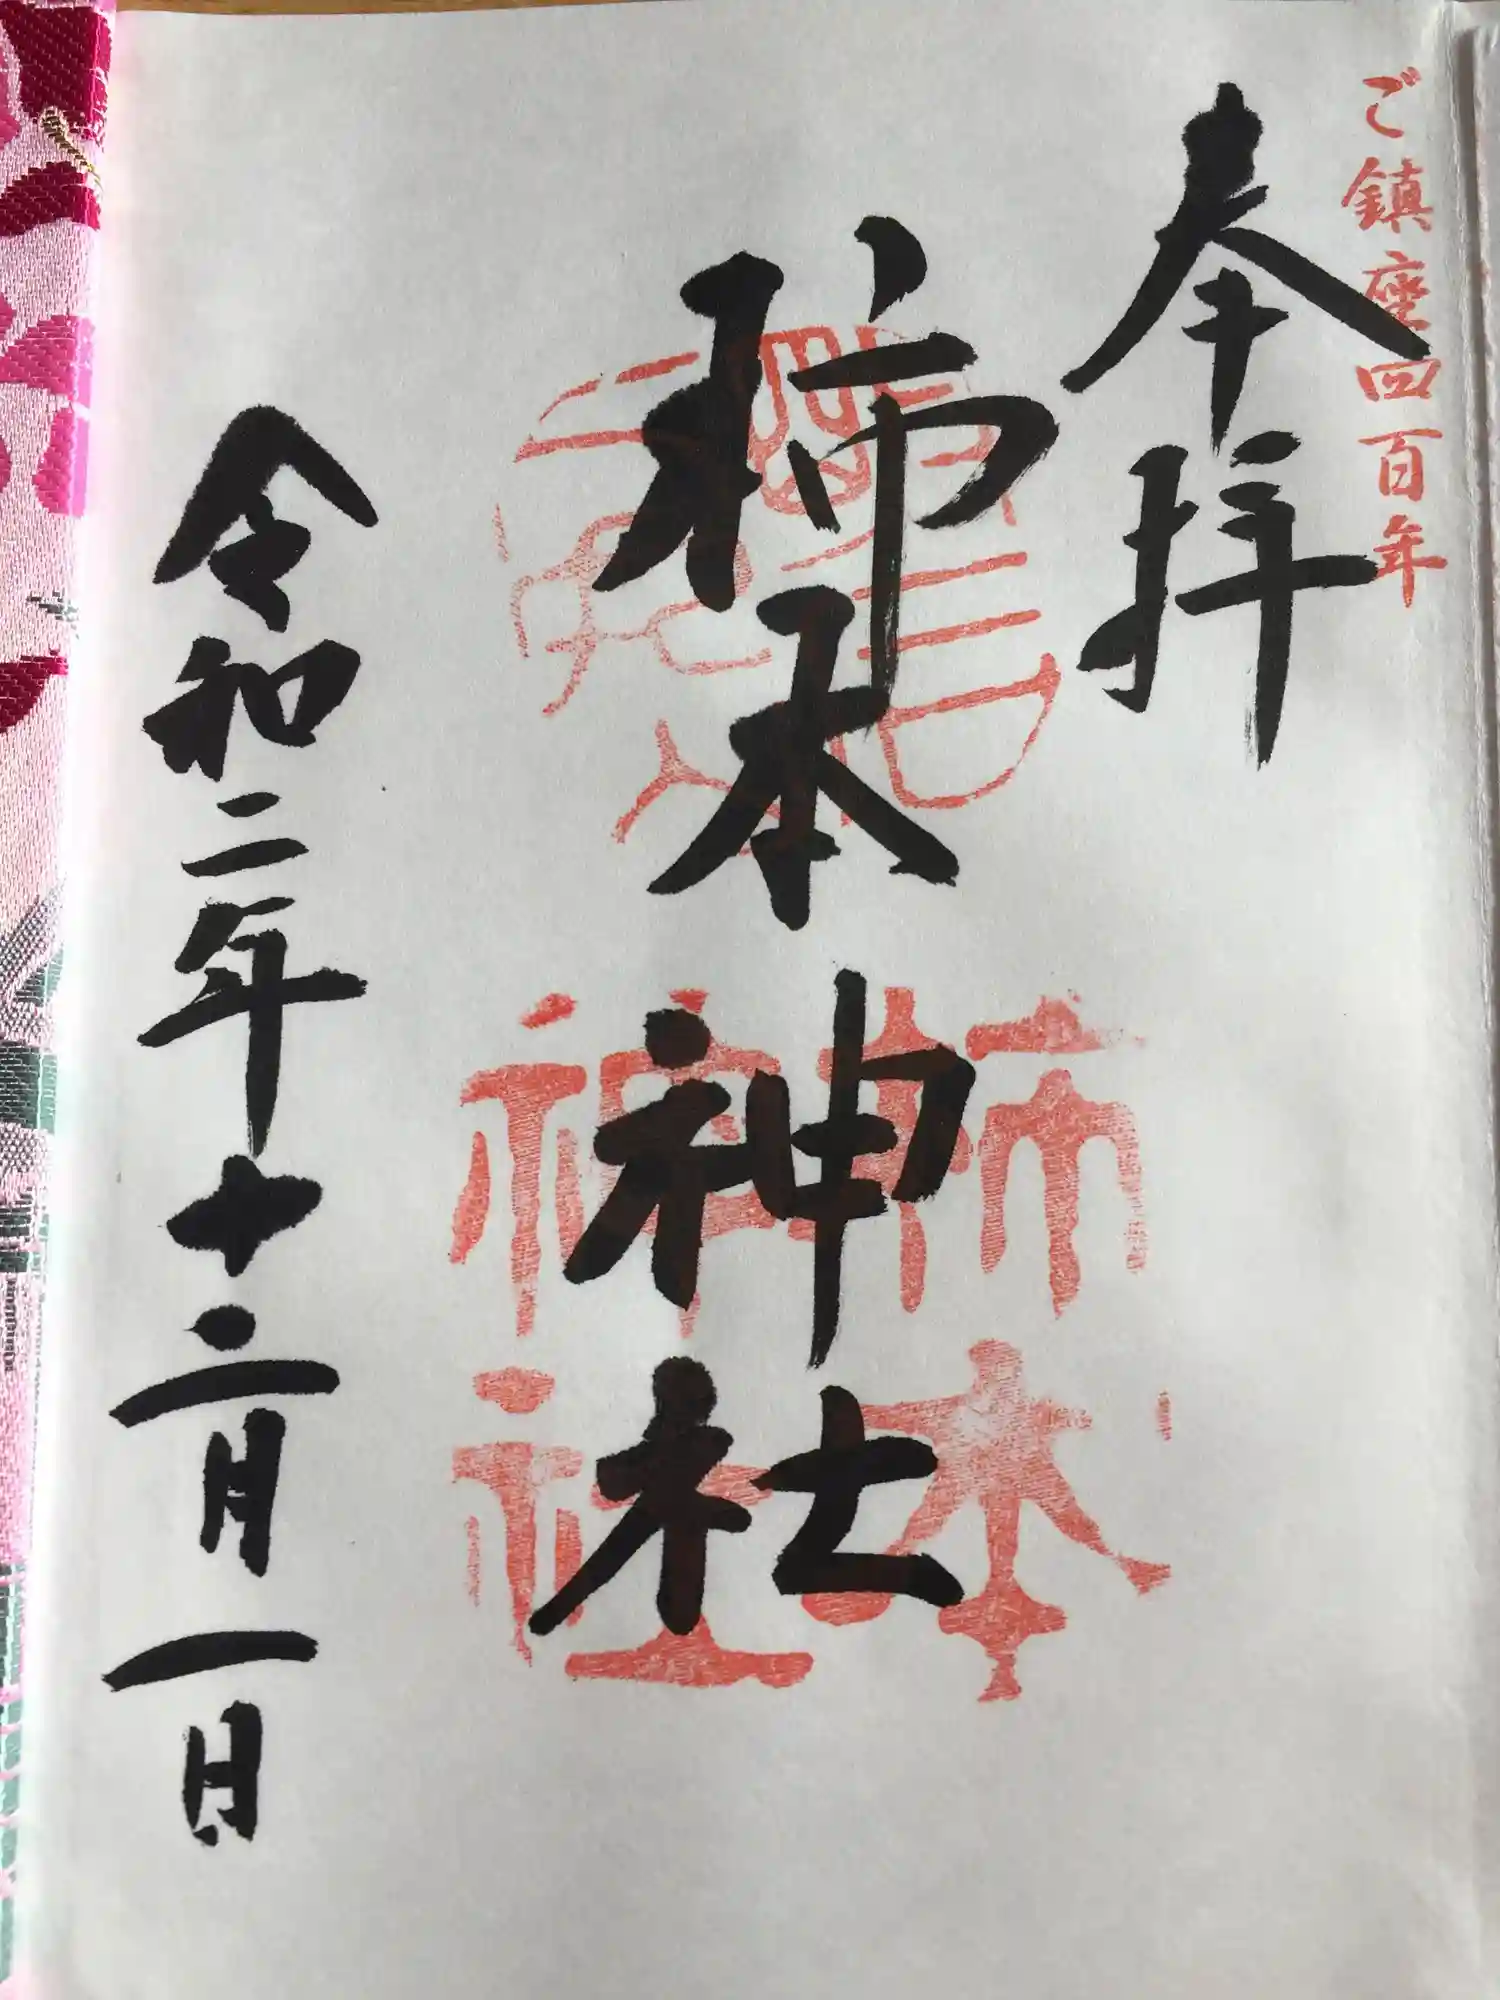 ご鎮座四百年
奉拝
柿本神社
柿本
神社
令和二年十二月一日